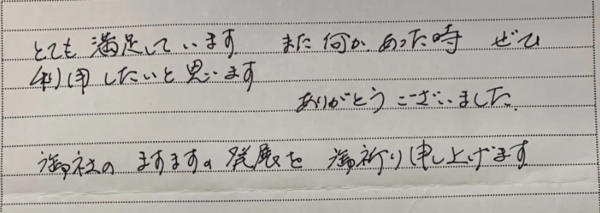 とても満足しています また何かあった時 ぜひ
利用したいと思います
ありがとうございました。
御社のますますの発展を御祈り申し上げます